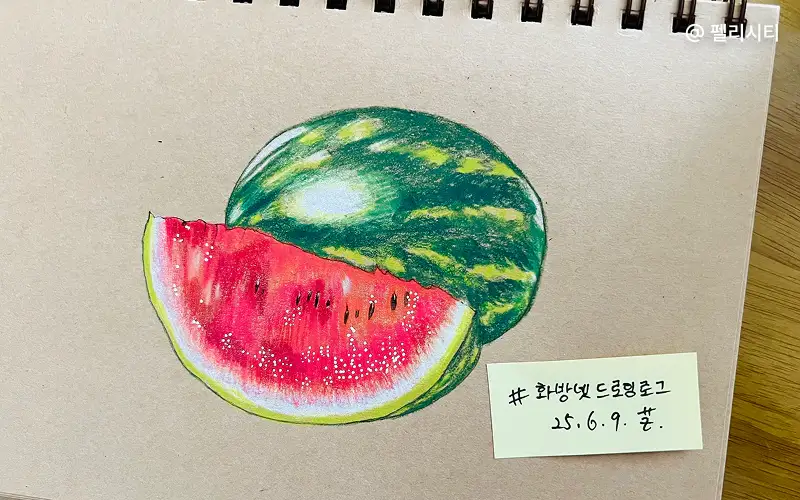 @ 펠리시티
# 화방넷드로잉로그
25.6.9. 뿃.